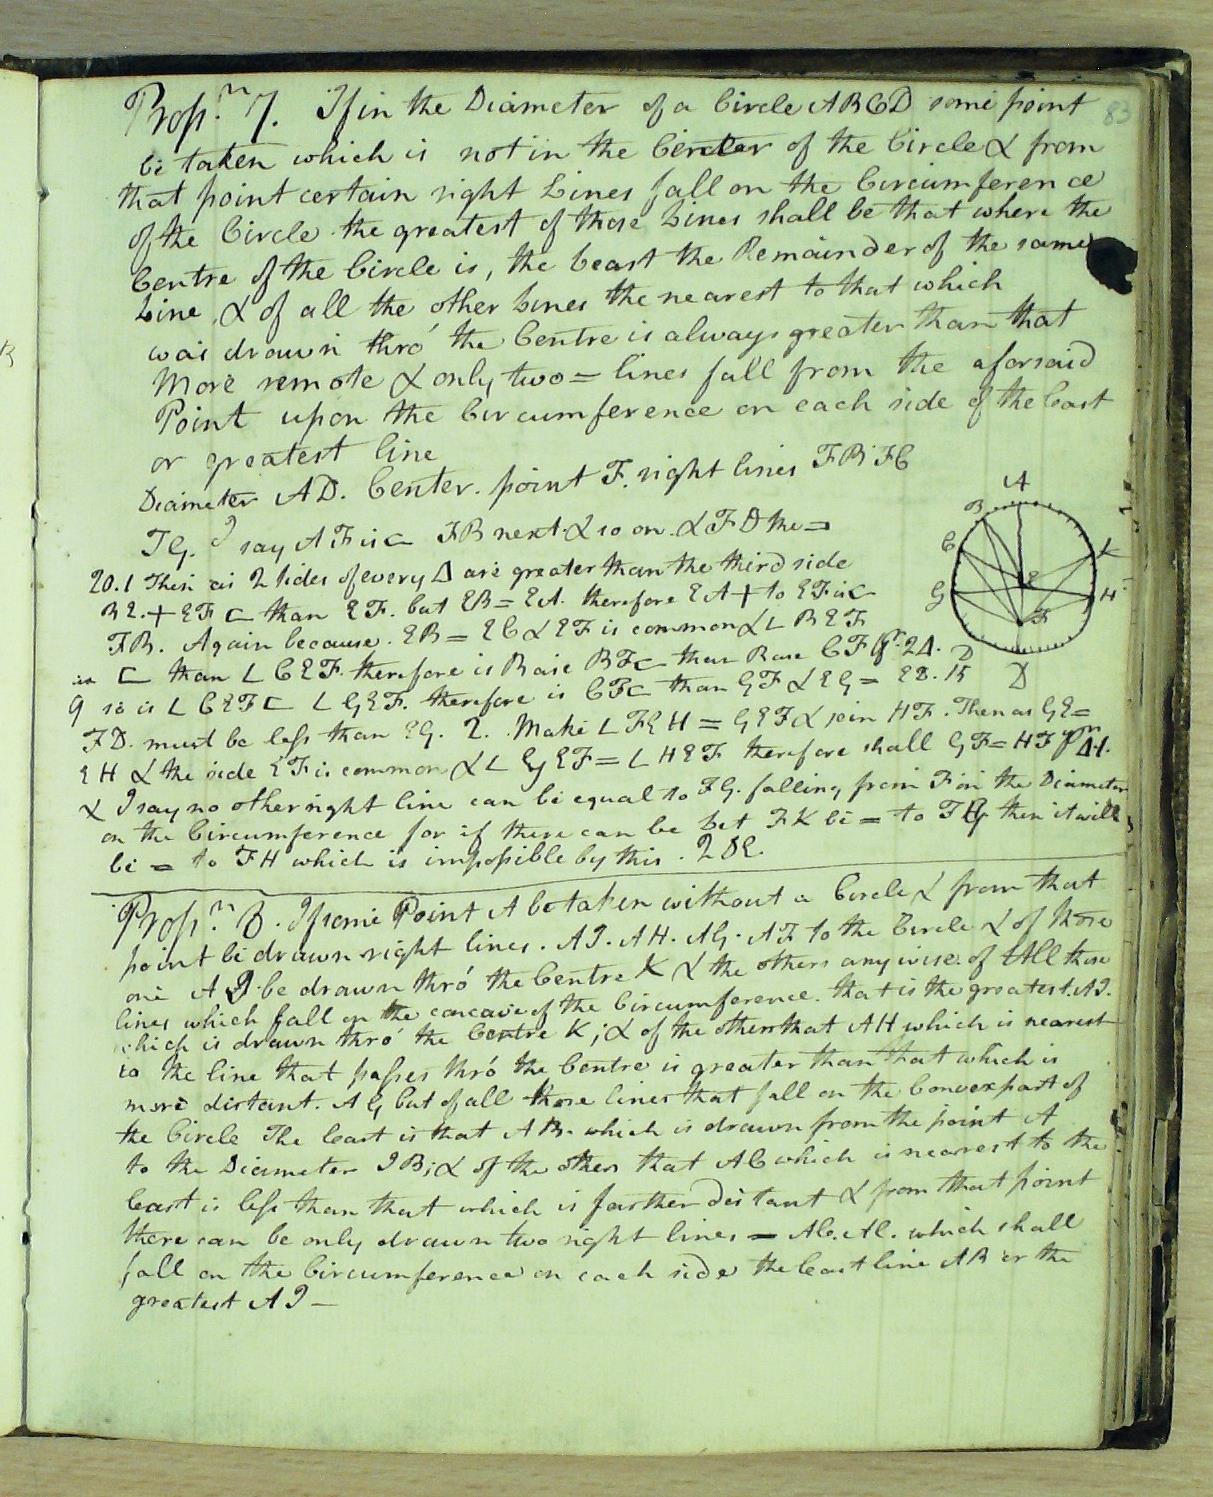 83
Prop.n 7. If in the Diameter of a Circle ABCD some point
be taken which is not in the Center of the Circle & from
that point certain right Lines fall on the Circumference
of the Circle the greatest of those Lines shall be that where the
Centre of the Circle is, the least the Remainder of the same
Line, & of all the other Lines the nearest to that which
was drawn thró the Centre is always greater than that
More remote & only two = lines fall from the aforsaid
Point upon the Circumference on each side of the least
or greatest line
Diameter AD. Center. point F. right lines FB FC
FG. I say AF is ⊏ FB next & so on. & FD the
20.1 Then as 2 sides of every Δ are greater than the third side
BE. + EF ⊏ than EF. but EB = EA. therefore EA + to EF is ⊏
FB. Again because. EB = EC & EF is common & ∠ BEF
is ⊏ than ∠ CEF. therefore is Base BF ⊏ than Base CF 24.
so is ∠ CEF ⊏ ∠ GEF. therefore is CF ⊏ than GF & EG = ED.
FD. must be less than EG. 2. Make ∠ FEH = GEF & join HF. Then as GE =
EH & the side EF is common & ∠ GEF = ∠ HEF therefore shall GF = HF
& I say no other right line can be equal to FG. falling from F in the Diameter
on the Circumference for if there can be let FK be = to FG then it will
be = to FH which is impossible by this. QDE.
A
B
C
G
K
H
E
F
D
D
Prop.n 8. If some Point A be taken without a Circle & from that
point be drawn right lines. AI. AH. AG. AF to the Circle & of those
one AI be drawn thró the Centre K & the others any wise. of All those
lines which fall on the concave of the Circumference. that is the greatest AI.
which is drawn thró the Centre K; & of the others that AH which is nearest
to the line that passes thró the Centre is greater than that which is
more distant. AG but of all those lines that fall on the Convex part of
the Circle The least is that AB. which is drawn from the point A
to the Diameter IB; & of the others that AC which is nearest to the
least is less than that which is farther distant & from that point
there can be only drawn two right lines = AC. AL. which shall
fall on the Circumference on each side the least line AB or the
greatest AI –